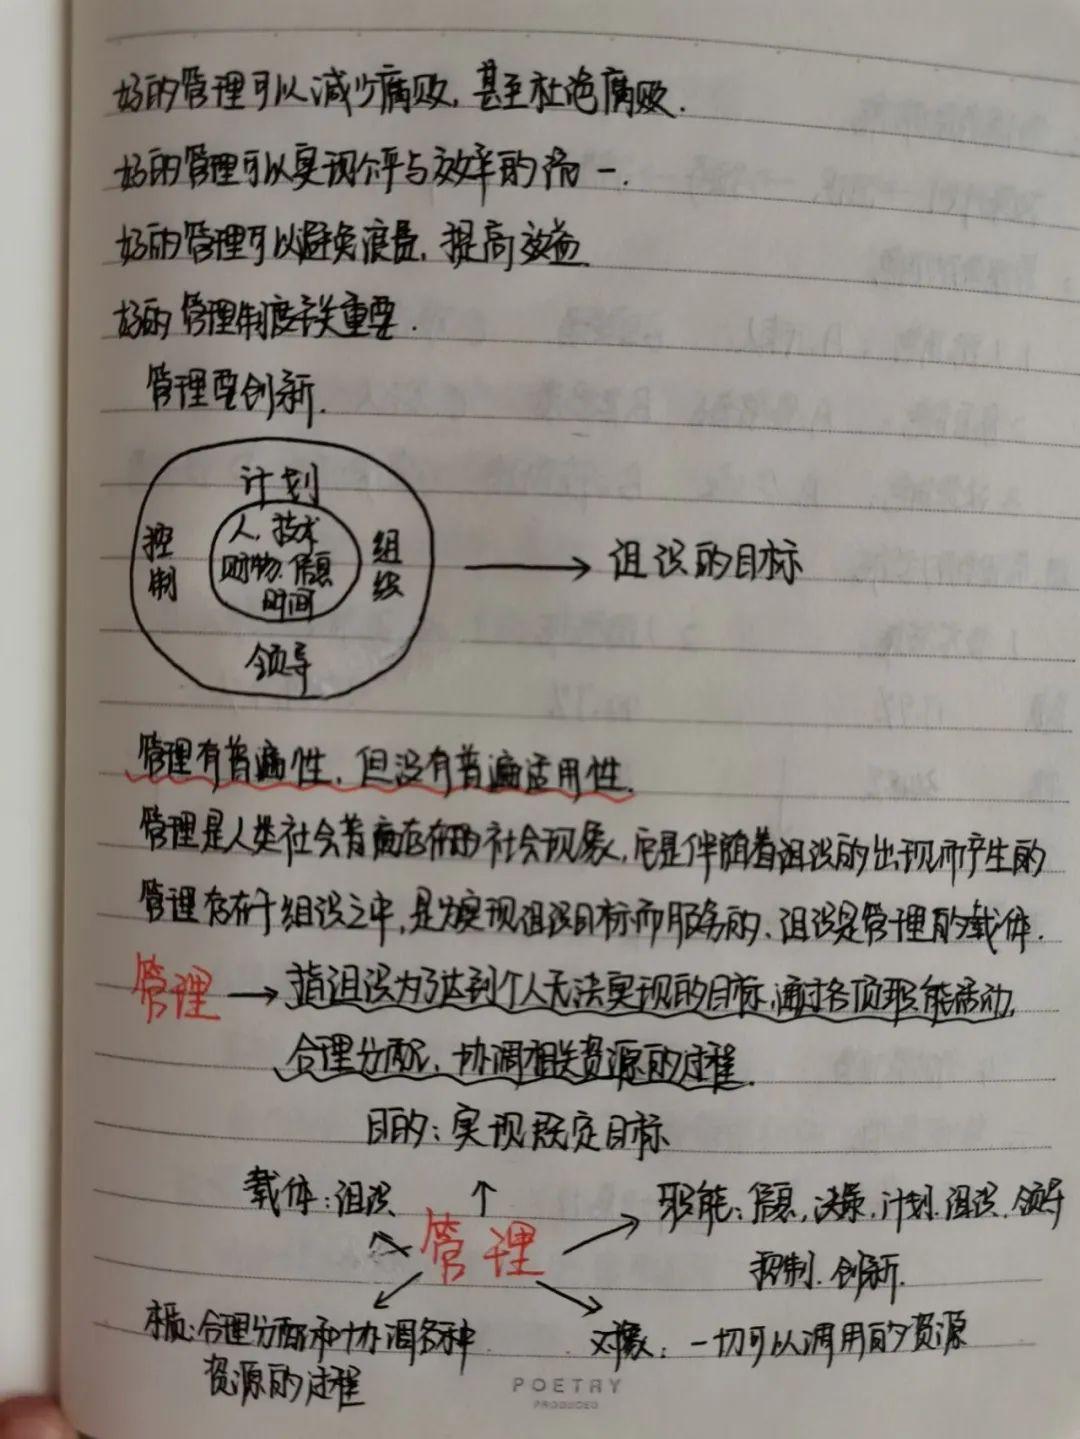 好的管理可以减少腐败，甚至杜绝腐败.
好的管理可以实现公平与效率的统一.
好的管理可以避免浪费，提高效益
好的管理制度至关重要.
管理要创新.
计划
控制
人、技术
财物、信息
时间
组织
领导
组织的目标
管理有普遍性，但没有普遍适用性.
管理是人类社会普遍存在的社会现象，它是伴随着组织的出现而产生的
管理存在于组织之中，是为实现组织目标而服务的、组织是管理的载体.
管理 → 指组织为了达到个人无法实现的目标，通过各项职能活动，
合理分配、协调相关资源的过程.
目的：实现既定目标
载体：组织
职能：信息、决策、计划、组织、领导
控制、创新.
管理
本质：合理分配和协调各种
资源的过程
对象：一切可以调用的资源
POETRY
PRODUCED